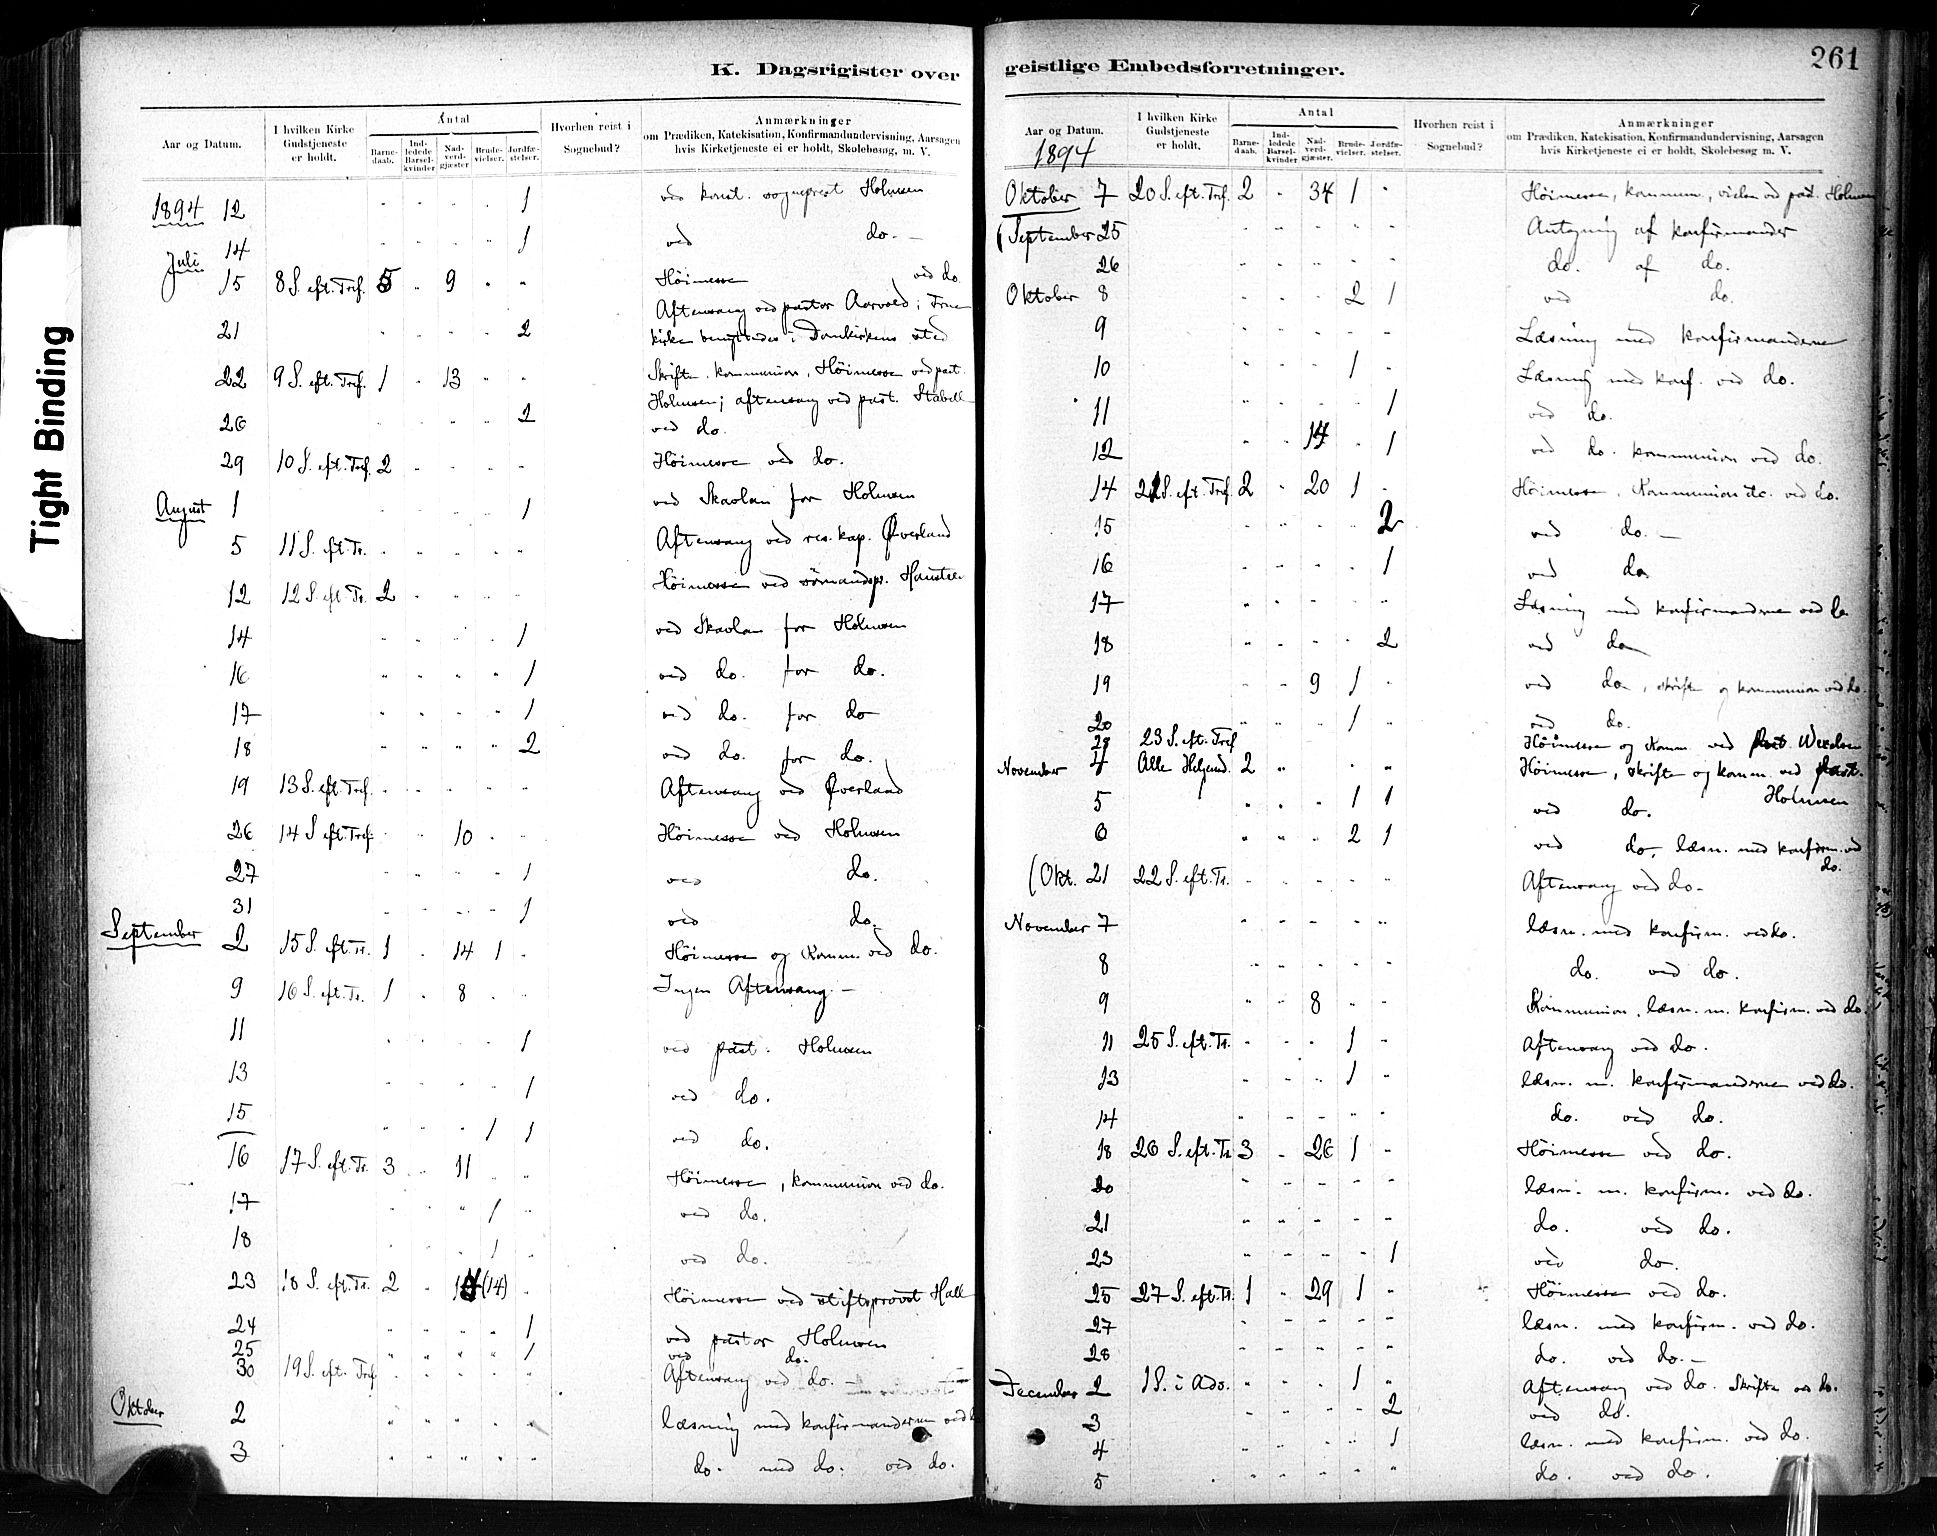 Tight Binding
K. Dagsrigister over
Aar og Datum. | I hvilken Kirke Gudstjeneste er holdt. | Antal | Barne- daab. | Ind- ledede Barsel- kvinder | Nad- verd- gjæster | Brude- vielser. | Jordfæ- stelser. | Hvorhen reist i Sognebud? | Anmærkninger om Prædiken, Katekisation, Konfirmandundervisning, Aarsagen hvis Kirketjeneste ei er holdt, Skolebesøg, m. V.
1894 12 " " " " 1 ved konst. sogneprest Holmsen
Juli 14 " " " " 1 ved do. –
15 8 S. eft. Tref. 5 " 9 " " Høimesse ved do.
Aftensang ved pastor Aarvold; Frue
21 " " " " 2 kirke benyttedes i Domkirkens sted
22 9 S. eft. Tref. 1 " 13 " " Skrifte, kommunion, Høimesse ved past.
Holmsen; aftensang ved past. Stabell
26 " " " " 2 ved do.
29 10 S. eft. Tref. 2 " " " " Høimesse ved do.
August 1 " " " " 1 ved Skaolan for Holmsen
5 11 S. eft. Tr. " " " " " Aftensang ved res. kap. Øverland
12 12 S. eft. Tr. 2 " " " " Høimesse ved sömandspr.
14 " " " " 1 ved Skaolan for Holmsen
16 " " " " 1 ved do. for do.
17 " " " " 1 ved do. for do
18 " " " " 2 ved do. for do.
19 13 S. eft. Tref. " " " " " Aftensang ved Øverland
26 14 S eft. Tref. " " 10 " " Høimesse ved Holmsen
27 " " " " 1 ved do.
31 " " " " 1 ved do.
September 2 15 S. eft. Tr. 1 " 14 1 " Høimesse og Komm. ved do.
9 16 S. eft. Tr. 1 " 8 " " Ingen Aftensang. –
11 " " " " 1 ved past. Holmsen
13 " " " " 1 ved do.
15 " " " 1 1 ved do.
16 17 S. eft. Tr. 3 " 11 " " Høimesse, kommunion ved do.
17 " " " 1 " ved do.
18 " " " 1 " ved do.
23 18 S. eft. Tr. 2 " (14) " Høimesse ved stiftsprovst Hall
24 " " " " 1 ved pastor Holmsen
25 " " " " 1 ved do.
30 19 S. eft. Tref " " " " " Aftensang ved do. –
Oktober 2 " " " " " læsning med konfirmanderne ved
3 " " " " " do. med do. ved do.
geistlige Embedsforretninger.
261
Aar og Datum. 1894 | I hvilken Kirke Gudstjeneste er holdt. | Antal | Barne- daab. | Ind- ledede Barsel- kvinder | Nad- verd- gjæster. | Brude- vielser. | Jordfæ- stelser. | Hvorhen reist i Sognebud? | Anmærkninger om Prædiken, Katekisation, Konfirmandundervisning, Aarsagen hvis Kirketjeneste ei er holdt, Skolebesøg m. V.
Oktober 7 20 S. eft. Tref. 2 " 34 1 " Høimesse, kommun., vielse ved past. Holmsen
(September 25 " " " " " Antegning af konfirmander
26 " " " " " do. af do.
Oktober 8 " " " 2 1 ved do.
9 " " " " " Læsning med konfirmanderne
10 " " " 1 " Læsning med konf. ved do.
11 " " " " 1 ved do.
12 " " 14 " 1 ved do. kommunion ved do.
14 21 S. eft. Tref. 2 " 20 1 " Høimesse, Kommunion etc. ved do.
15 " " " " 2 ved do. –
16 " " " " 1 ved do.
17 " " " " " Læsning med konfirmanderne ved do
18 " " " " 2 ved do
19 " " 9 1 " ved do, skrifte og kommunion ved do.
20 " " " 1 " ved do.
23 S. eft. Tref Høimesse og Komm. ved Past.
November 4 Alle Helgend. 2 " " " Høimesse, skrifte og komm. ved past.
Holmsen
5 " " " 1 1 ved do.
6 " " " 2 1 ved do, læsn. med konfirm. ved
do.
(Okt. 21 22 S. eft. Tr. " " " " " Aftensang ved do –
November 7 " " " " " læsn. med konfirm. ved do.
8 " " " " " do. ved do.
9 " " 8 " " Kommunion, læsn. m. konfirm. ved do.
11 25 S. eft. Tr. " " " 1 " Aftensang ved do.
13 " " " 1 " læsn. m. konfirmanderne ved do.
14 " " " " " do. ved do.
18 26 S. eft. Tr 3 " 26 1 " Høimesse ved do.
20 " " " " " læsn. m. konfirm. ved do.
21 " " " " " do. ved do.
23 " " " " 1 ved do.
25 27 S. eft. Tr. 1 " 29 1 " Høimesse ved do.
27 " " " " " læsn. med konfirm. ved do.
28 " " " " " do. ved do. –
December 2 1 S. i Adv. " " " 1 " Aftensang ved do. Skrifte ved do.
3 " " " " 2 ved do.
4 " " " " 1 læsn. med konfirm. ved do.
5 " " " " " do. ved do.